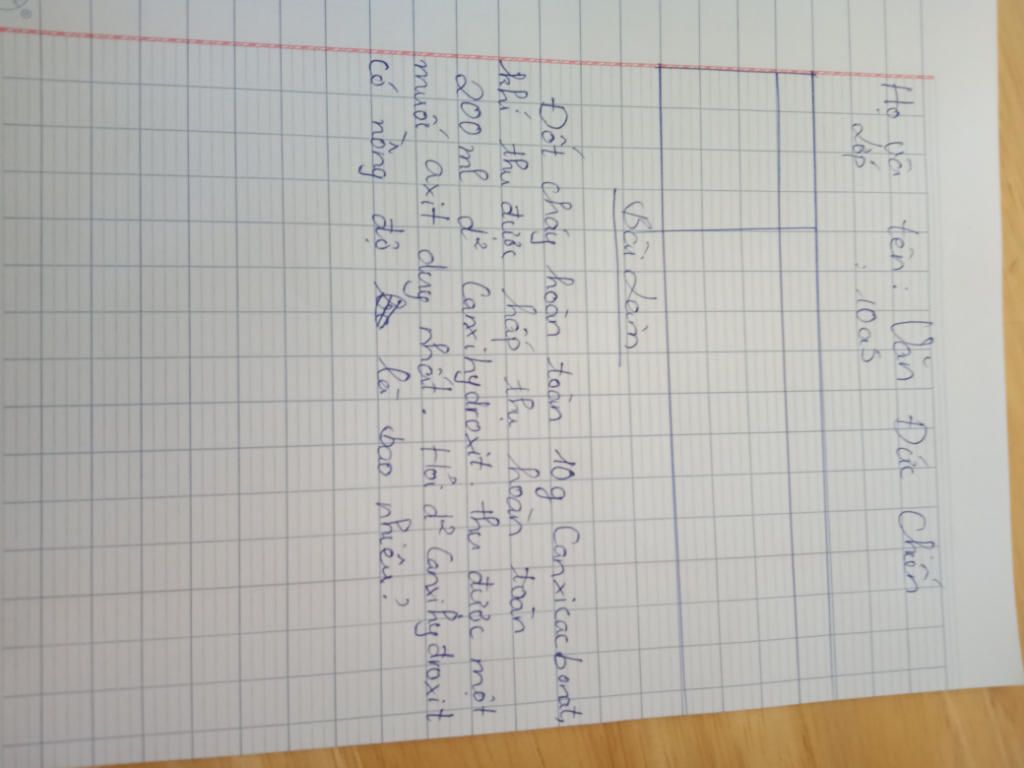 Họ và tên: Văn Đức Chiến
Lớp : 10a5
Bài Làm
Đốt cháy hoàn toàn 10g Canxicacbonat,
khí thu được hấp thụ hoàn toàn
200ml d² Canxihydroxit. thu được một
muối axit duy nhất. Hỏi d² Canxihydroxit
có nồng độ là bao nhiêu?